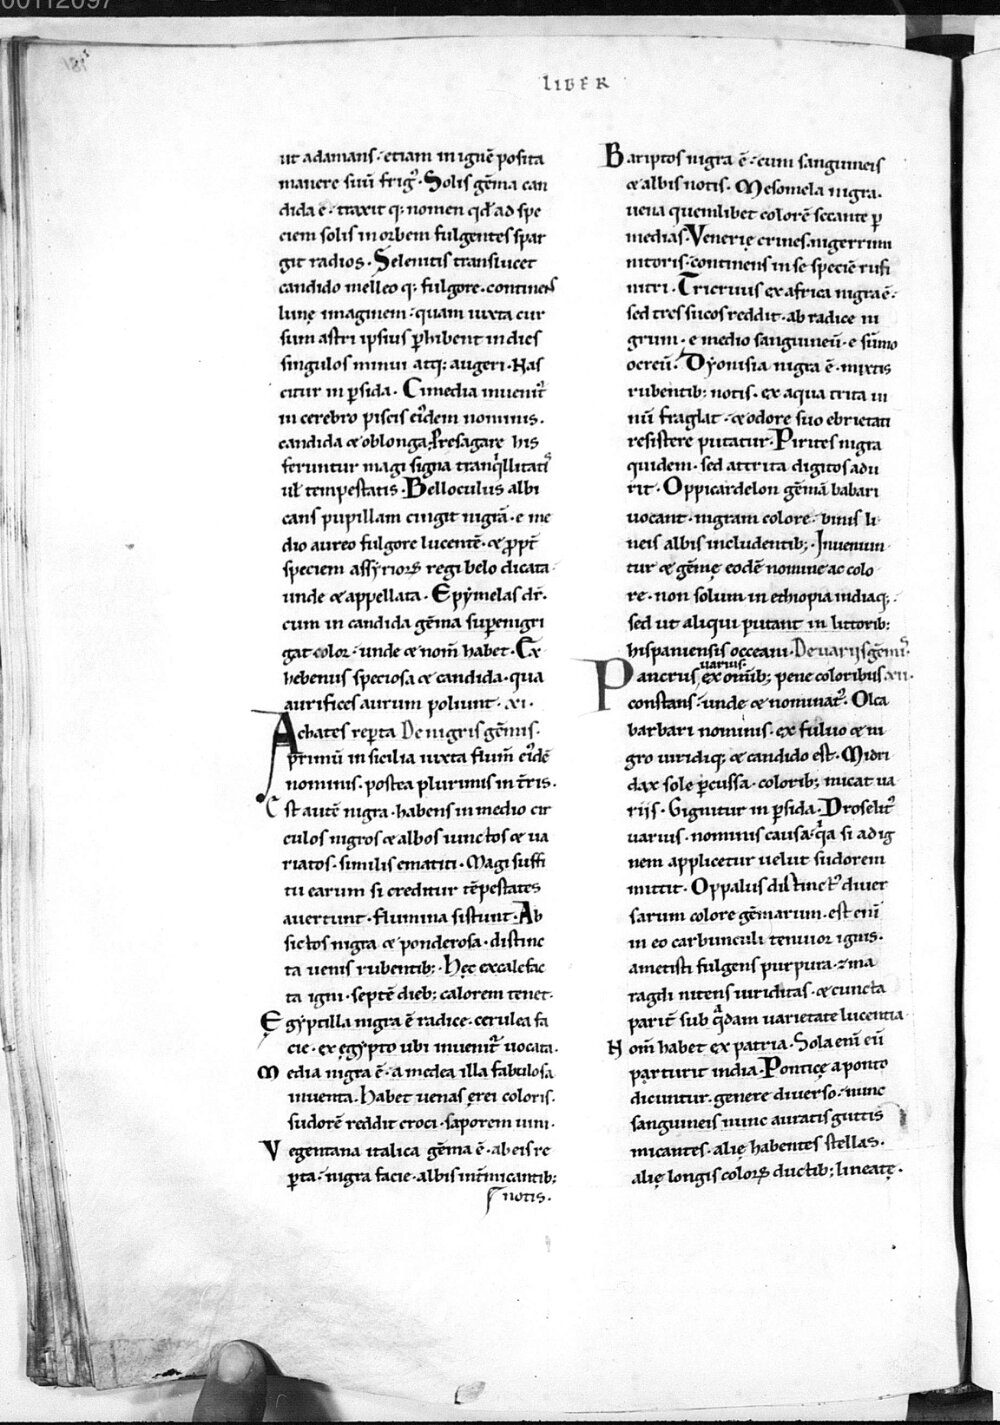 00112097
LIBER
ut adamans · etiam in igne posita
manere suū frig᷒ · Solis gēma can
dida ē · traxit q; nomen qd ad spe
ciem solis in orbem fulgentes spar
git radios · Selenitis translucet
candido melleo q; fulgore · continens
lunę imaginem · quam iuxta cur
sum astri ipsius ꝑhibent in dies
singulos minui atq; augeri · Nas
citur in ꝑsida · Cimedia inuenit᷒
in cerebro piscis eidem nominis ·
candida & oblonga · Presagare his
feruntur magi signa tranqllitatis
uł tempestatis · Belloculus albi
cans pupillam cingit nigrā · e me
dio aureo fulgore lucentē · & ꝓpt
speciem assyrioꝝ regi belo dicata
unde & appellata · Epymelas dr̄ ·
cum in candida gēma suꝑ nigri
gat color · unde & nom̄ habet · Ex
hebenus speciosa & candida · qua
aurifices aurum poliunt · xi ·
Achates reꝑta De nigris gēmis ·
primū in sicilia iuxta flum̄ eidē
nominis · postea plurimis in t̄ris ·
Est autē nigra · habens in medio cir
culos nigros & albos iunctos & ua
riatos · similis ematiti · Magi suffi
tu earum si creditur tēpestates
auertunt · flumina sistunt · Ab
sictos nigra & ponderosa · distinc
ta uenis rubentib; · Hęc excalefac
ta igni · septē dieb; calorem tenet ·
Egyptilla nigra ē radice · cerulea fa
cie · ex egypto ubi inuenit᷒ uocata ·
Media nigra ē · a medea illa fabulosa
inuenta · Habet uenas ęrei coloris ·
sudorē reddit croci · saporem uini ·
Vegentana italica gēma ē · ab eis re
ꝑta · nigra facie · albis int̄micantib;
notis ·
Bariptos nigra ē · cum sanguineis
& albis notis · Mesomela nigra ·
uena quemlibet colorē secante ꝑ
medias · Venerię crines · nigerrimi
nitoris · continens in se speciē rufi
nitri · Tricruus ex africa nigra ē ·
sed tres sucos reddit · ab radice ni
grum · e medio sanguineū · e sūmo
ocreū · Dyonisia nigra ē · mixtis
rubentib; notis · ex aqua trita ui
nū fraglat · & odore suo ebrietati
resistere putatur · Pirites nigra
quidem · sed attrita digitos adu
rit · Oppicardelon gēmā babari
uocant · nigram colore · binis li
neis albis includentib; · Inueniun
tur & gēmę eodē nomine ac colo
re · non solum in ethiopia indiaq; ·
sed ut aliqui putant in littorib;
hispaniensis occeani · De uariis gēmis ·
uarius
Pancrus ex omīb; pene coloribus · xii ·
constans · unde & nominat᷒ · Olca
barbari nominis · ex fuluo & ni
gro uiridiq; & candido est · Midri
dax sole ꝑcussa · colorib; micat ua
riis · Gignitur in ꝑsida · Droselit᷒
uarius · nominis causa · qa si ad ig
nem applicetur uelut sudorem
mittit · Oppalus distinct᷒ diuer
sarum colore gēmarum · est enī
in eo carbunculi tenuior ignis ·
ametisti fulgens purpura · zma
ragdi nitens uiriditas · & cuncta
parit̄ sub qdam uarietate lucentia
Nom̄ habet ex patria · Sola enī eū
parturit india · Ponticę a ponto
dicuntur · genere diuerso · nunc
sanguineis nunc auratis guttis
micantes · alię habentes stellas ·
alię longis coloꝝ ductib; lineatę ·